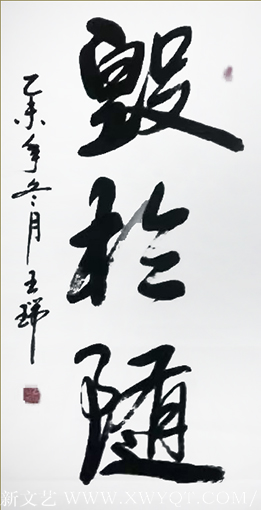 毁於随
乙未年冬月王瑞
新文艺 WWW.XWYQT.COM/